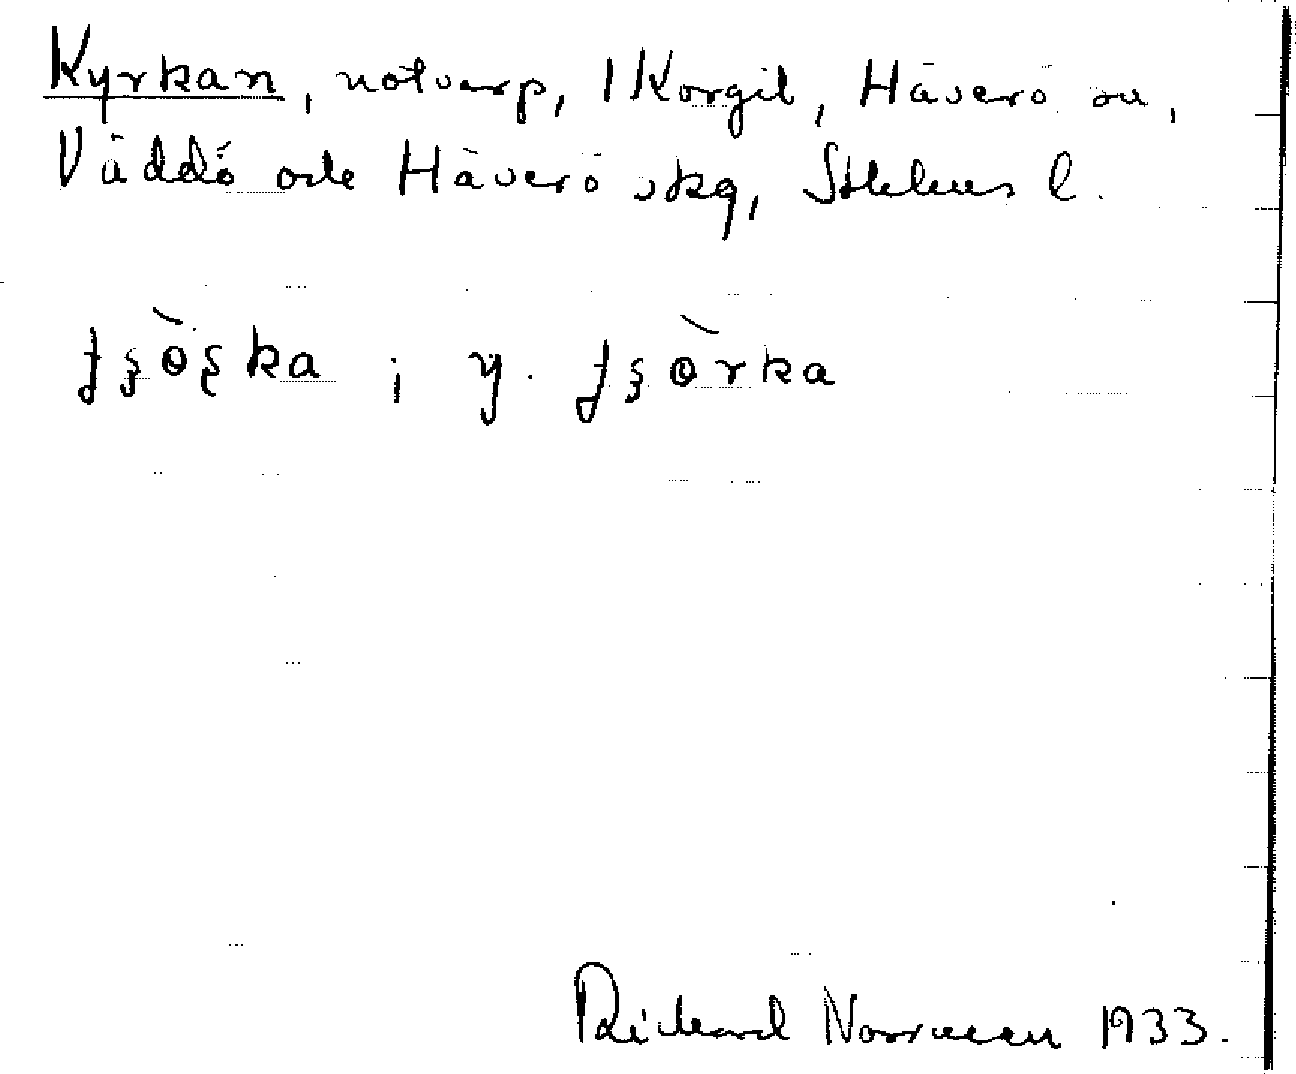 Kyrkan, notvarp, 1 Korgil, Häverö sn,
Väddö och Häverö skg, Sthlms l.
ʃʂɵ̀ʂka ; y. ʃʂɵ̀rka
Richard Norrman 1933.